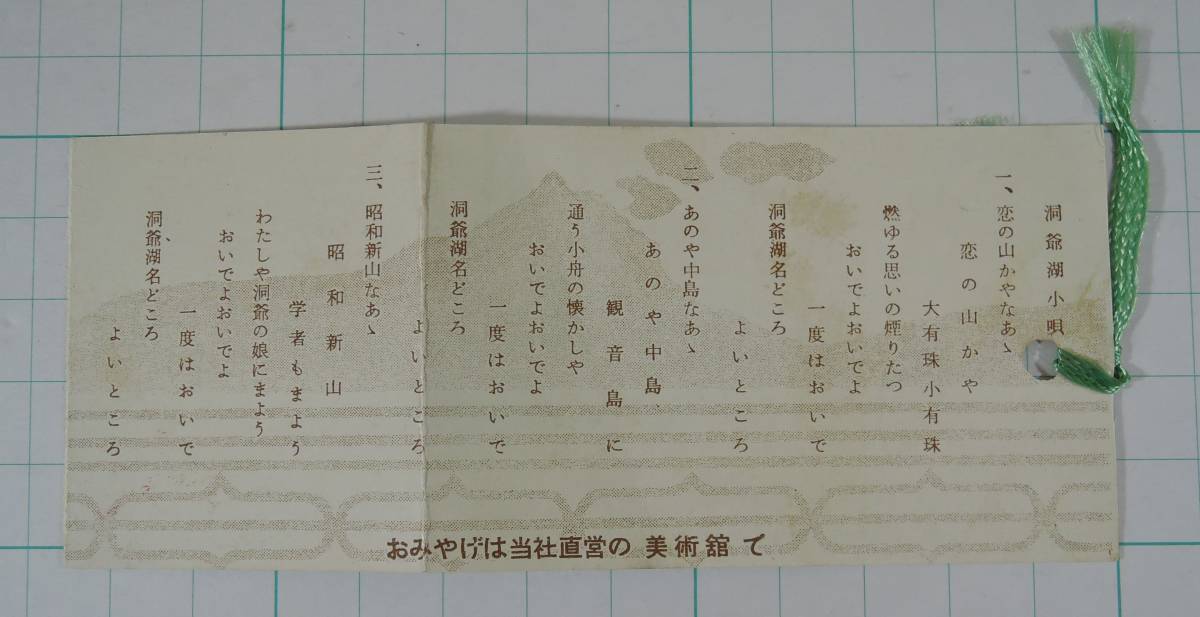 洞爺湖小唄
一、恋の山かやなあゝ
恋の山かや
大有珠小有珠
燃ゆる思いの煙りたつ
おいでよおいでよ
一度はおいで
洞爺湖名どころ
よいところ
二、あのや中島なあゝ
あのや中島、
観音島に
通う小舟の懐かしや
おいでよおいでよ
一度はおいで
洞爺湖名どころ
よいところ
三、昭和新山なあゝ
昭和新山
学者もまよう
わたしや洞爺の娘にまよう
おいでよおいでよ
一度はおいで
洞爺湖名どころ
よいところ
おみやげは当社直営の 美術舘 で